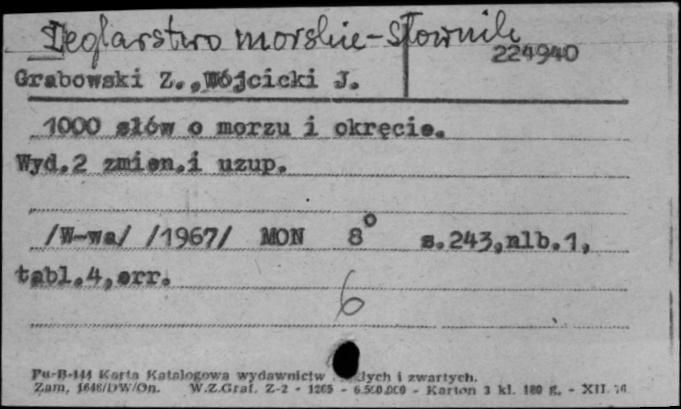 Żeglarstwo morskie - Słownik
224940
Grabowski Z., Wójcicki J.
1000 słów o morzu i okręcie.
Wyd.2 zmien.i uzup.
/W-wa/ /1967/ MON 8° s.243,nlb.1,
tabl.4,err.
6
Pu-B-144 Karta Katalogowa wydawnictw i zwartych.
Zam. 1648/DW/On. W.Z.Graf. Z-2 - 1205 - 6.500.000 - Karton 3 kl. 180 g. - XII.